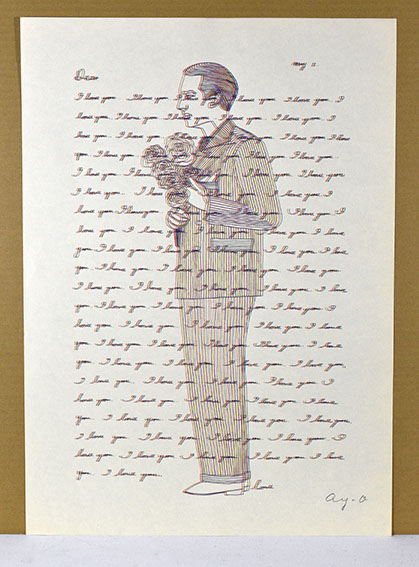 May 11.
Dear
I love you. I love you. I love you. I love you. I love you. I
love you. I love you. I love you. I love you. I love you. I
love you. I love you. I love you. I love you. I love
you. I love you. I love you. I love you. I love you.
I love you. I love you. I love you. I love you.
I love you. I love you. I love you. I love you. I
love you. I love you. I love you. I love you. I
love you. I love you. I love you. I love you. I love
you. I love you. I love you. I love you. I love
you. I love you. I love you. I love you. I
love you. I love you. I love you. I love you. I love
you. I love you. I love you. I love you. I
love you. I love you. I love you. I love
you. I love you. I love you. I love you. I love
you. I love you. I love you. I love you. I love you.
I love you. I love you. I love you. I love you. I
love you. I love you. I love you. I love
you. I love you. I love you. I love you. I love you.
I love you. I love you. I love you. I love you. I
love you. I love you. I love you. I love you. I love
you. I love you.
Love
Ay-O